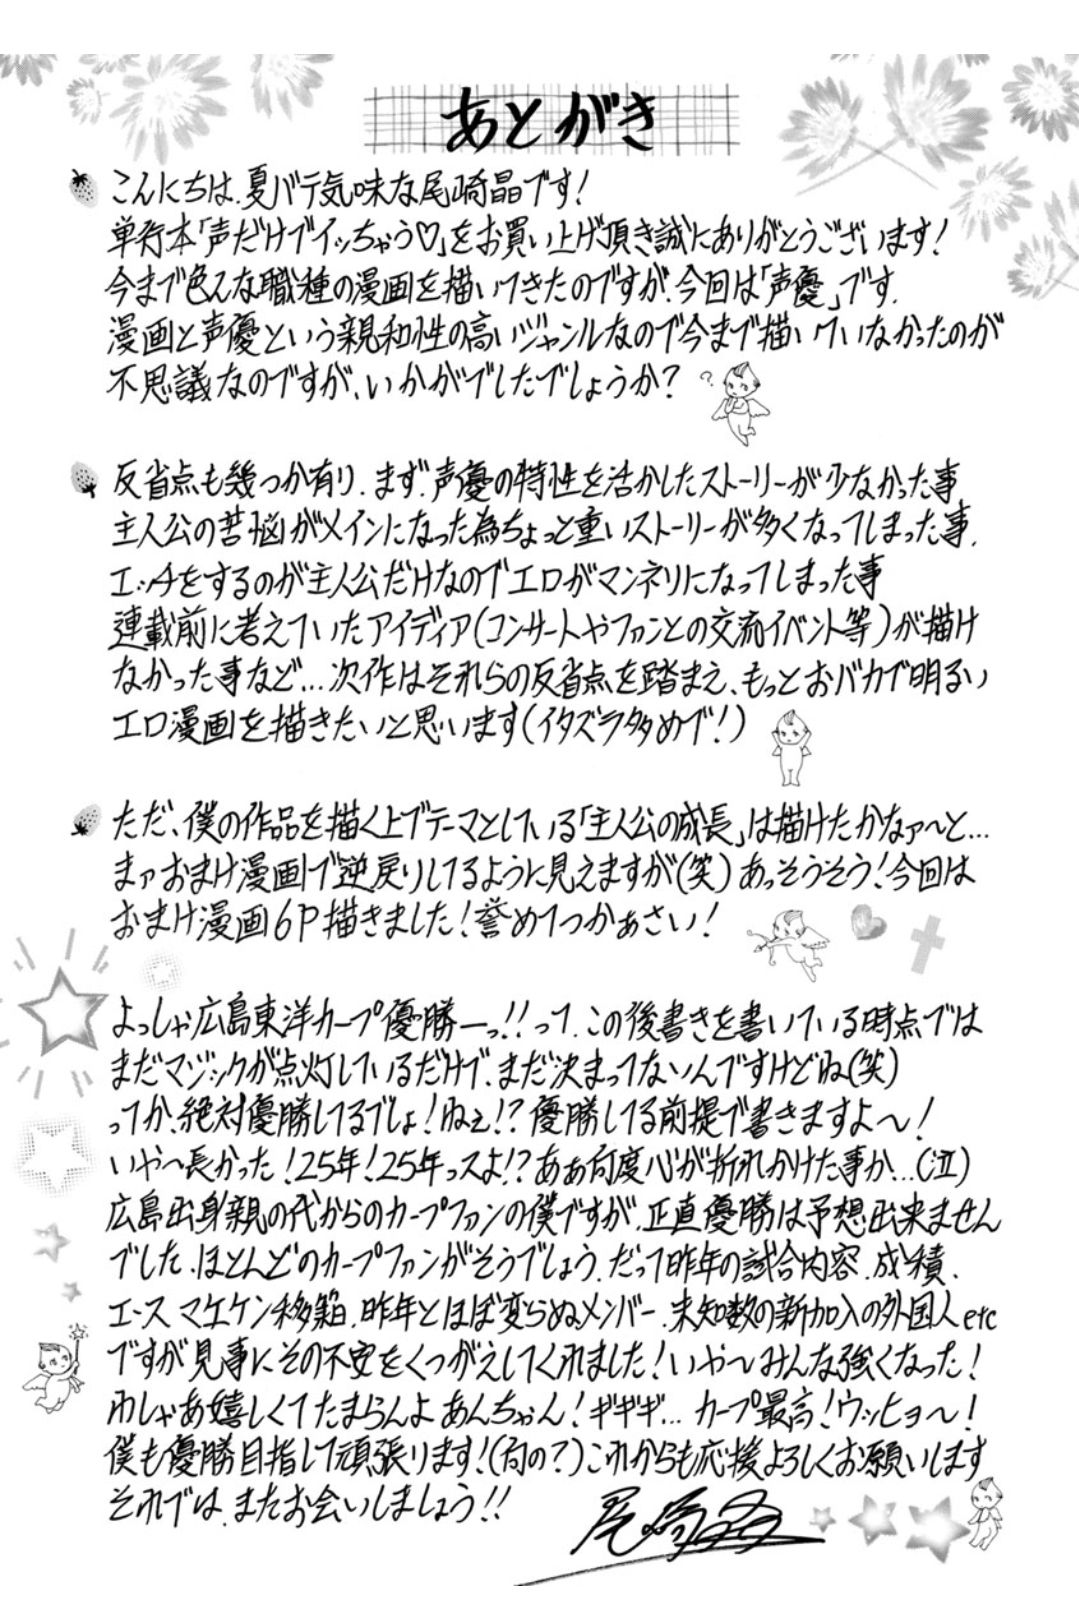 あとがき
こんにちは、夏バテ気味な尾崎晶です!
単行本「声だけでイッちゃう♡」をお買い上げ頂き誠にありがとうございます!
今まで色んな職種の漫画を描いてきたのですが、今回は「声優」です。
漫画と声優という親和性の高いジャンルなので今まで描いていなかったのが
不思議なのですが、いかがでしたでしょうか?
?
反省点も幾つか有り、まず、声優の特性を活かしたストーリーが少なかった事、
主人公の苦悩がメインになった為ちょっと重いストーリーが多くなってしまった事、
エッチをするのが主人公だけなのでエロがマンネリになってしまった事
連載前に考えていたアイディア(コンサートやファンとの交流イベント等)が描け
なかった事など…次作はそれらの反省点を踏まえ、もっとおバカで明るい
エロ漫画を描きたいと思います(イタズラ多めで!)
ただ、僕の作品を描く上でテーマとしている「主人公の成長」は描けたかなァ〜と…
まァおまけ漫画で逆戻りしてるように見えますが(笑)あっそうそう!今回は
おまけ漫画6P描きました!誉めてつかぁさい!
よっしゃ広島東洋カープ優勝ーっ!!って、この後書きを書いている時点では
まだマジックが点灯しているだけで、まだ決まってないんですけどね(笑)
ってか、絶対優勝してるでしょ!ねぇ!?優勝してる前提で書きますよ〜!
いや〜長かった!25年!25年っスよ!?ああ何度心が折れかけた事か…(泣)
広島出身親の代からのカープファンの僕ですが、正直優勝は予想出来ません
でした、ほとんどのカープファンがそうでしょう、だって昨年の試合内容、成績、
エース マエケン移籍、昨年とほぼ変らぬメンバー、未知数の新加入の外国人etc
ですが見事にその不安をくつがえしてくれました!いや〜みんな強くなった!
わしゃあ嬉しくてたまらんよ あんちゃん!ギギギ… カープ最高!ウッヒョ〜!
僕も優勝目指して頑張ります!(何の?)これからも応援よろしくお願いします
それでは、またお会いしましょう!!
尾崎晶